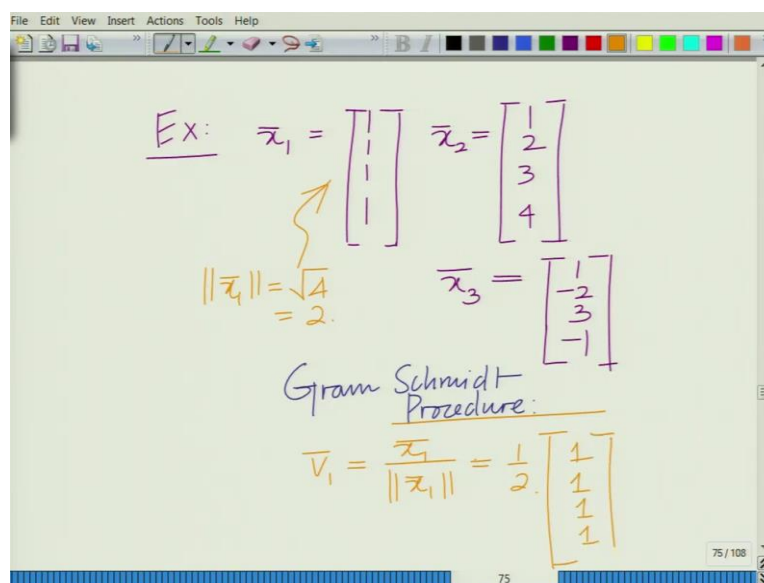 File Edit View Insert Actions Tools Help
B I
Ex: x̄₁ = [1 1 1 1] x̄₂ = [1 2 3 4]
||x̄₁|| = √4
= 2.
x̄₃ = [1 -2 3 -1]
Gram Schmidt
Procedure:
v̄₁ = x̄₁ / ||x̄₁|| = 1/2. [1 1 1 1]
75 / 108
75